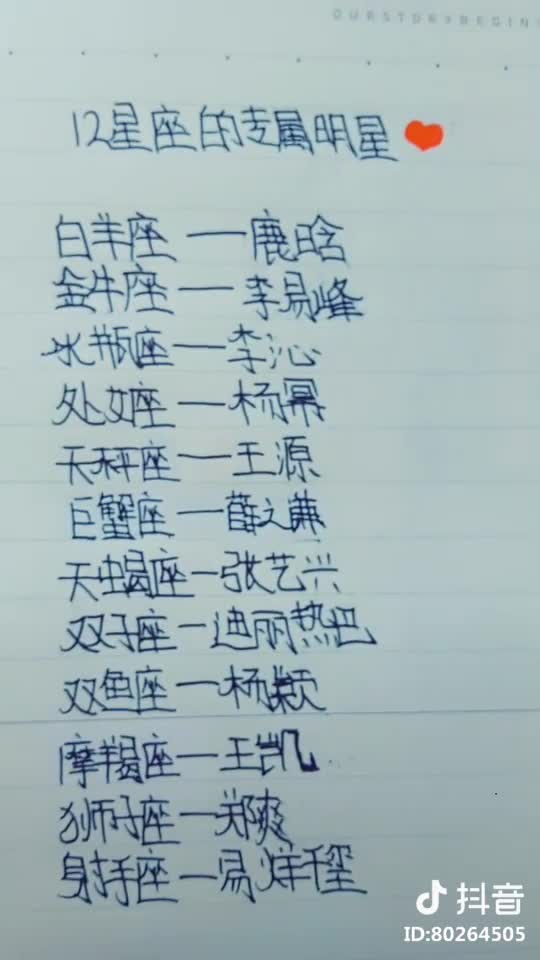 OURSTORYBEGIN
12星座的专属明星
白羊座一鹿晗
金牛座一李易峰
水瓶座一李沁
处女座一杨幂
天秤座一王源
巨蟹座一薛之谦
天虫蝎座一张艺兴
双子座一迪丽热巴
双鱼座一杨颖
摩羯座一王凯
狮子座一郑爽
射手座一易烊千玺
抖音
ID:80264505